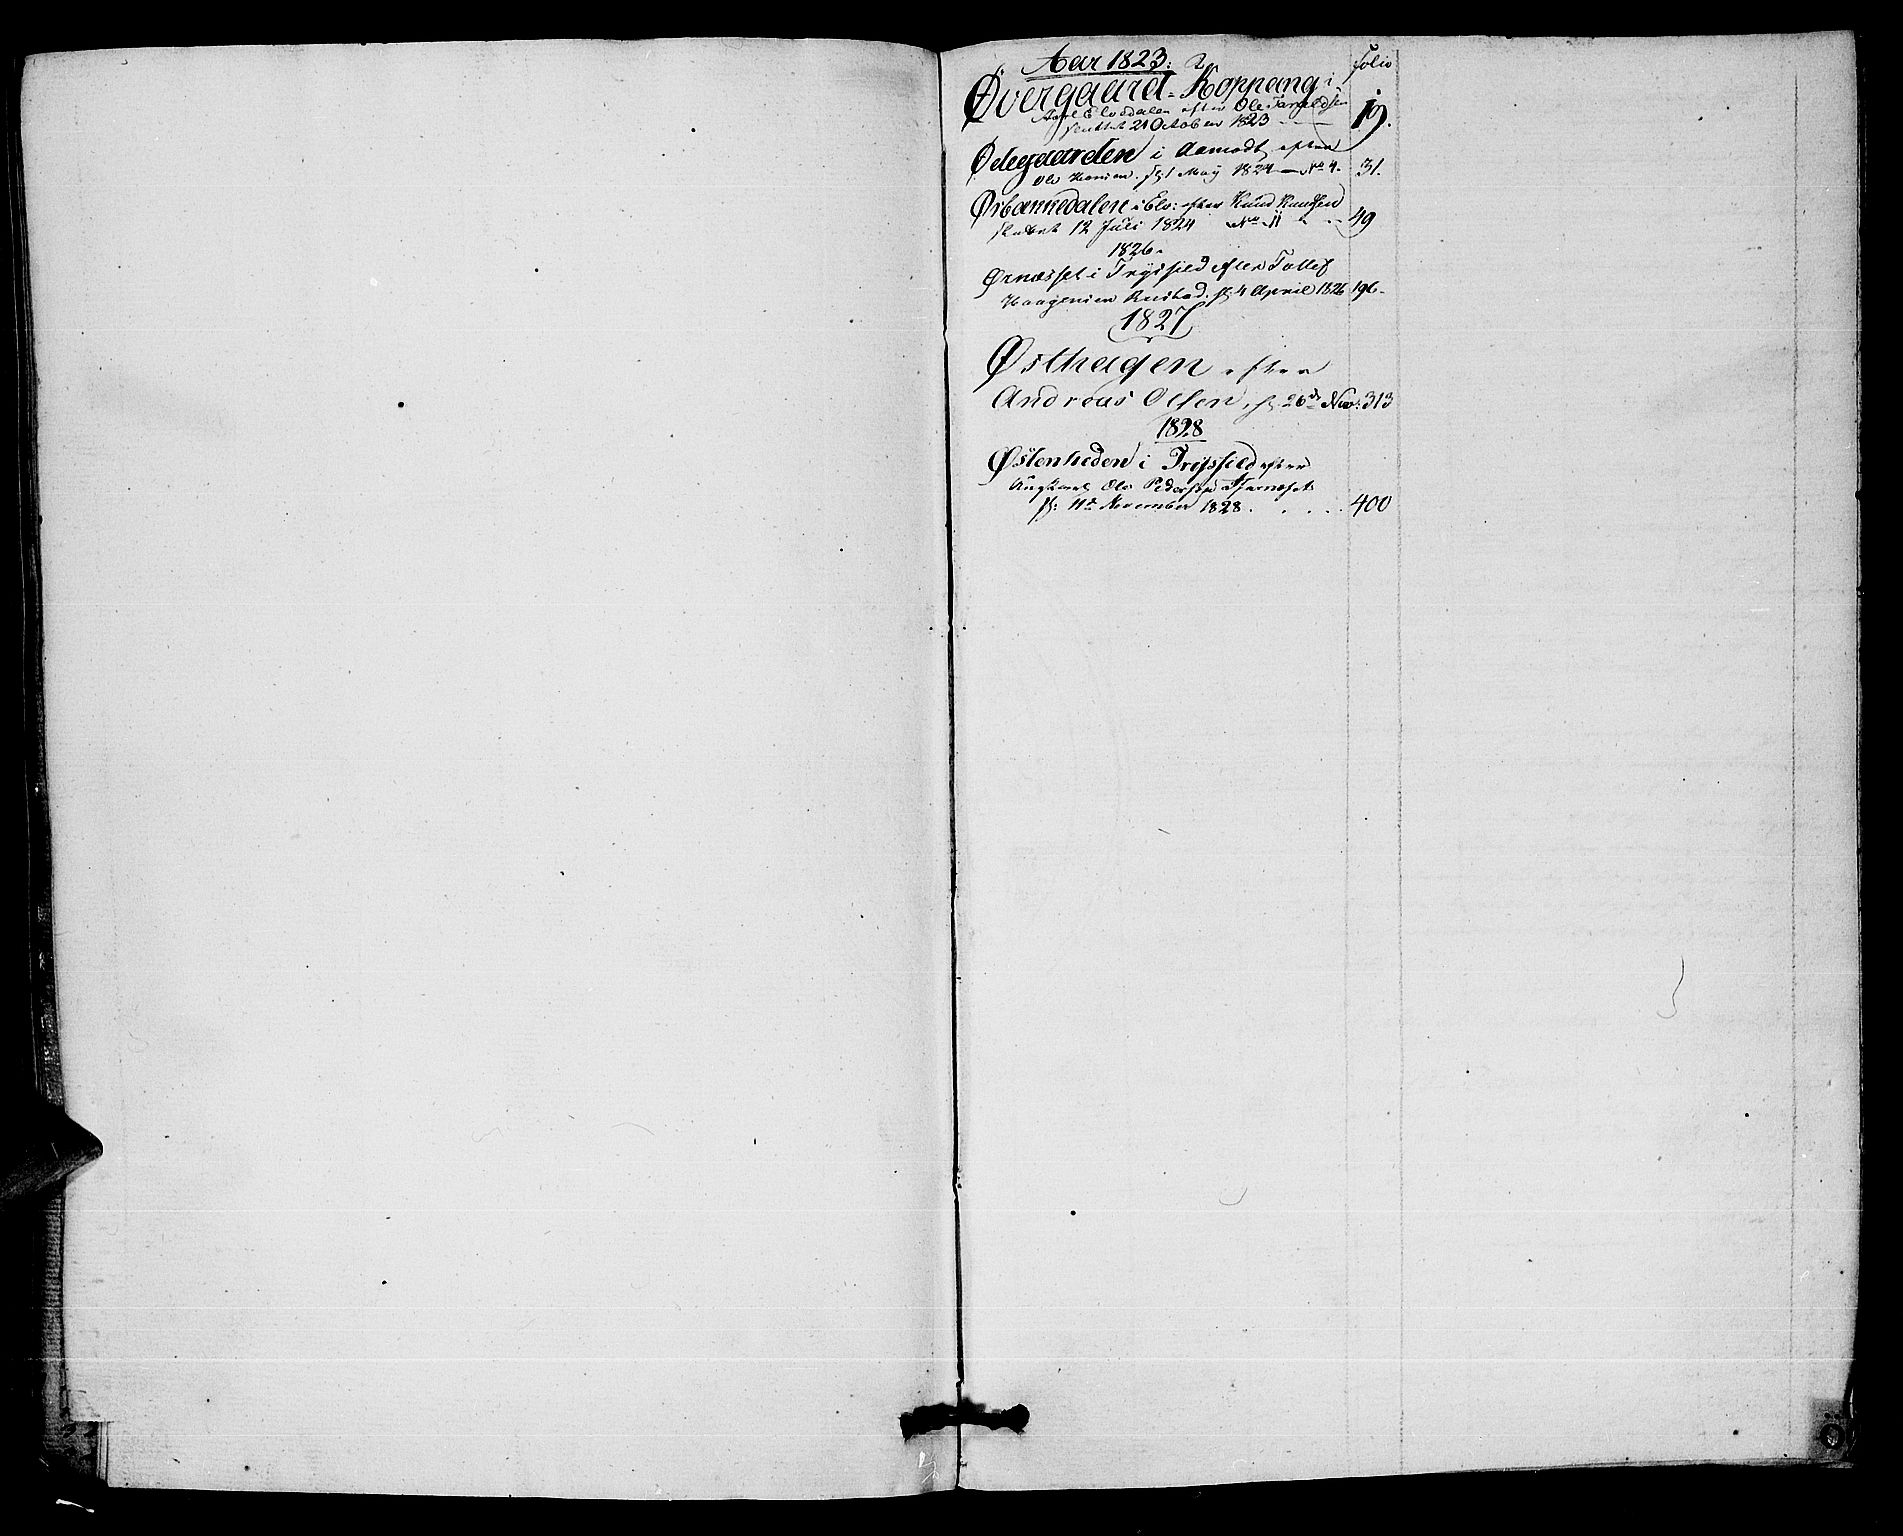 Aar 1823.
Folio
Øvergaard-Koppang i
Elvedalen efter Ole
sluttet 21 October 1823 19.
Ødegaarden i Aamodt efter
Ole Hansen. sl: 1 May 1824 No 4. 31.
i Elv: efter Knud Knudsen
sluttet 12 Juli 1824 No 11 49
1826.
Ørnæsset i Tryssild efter Tollef
Haagensen Rustad. sl: 4 April 1826 196.
1827
Østhagen efter
Andreas Olsen, sl: 26de Nov: 313
1828
Østenheden i Tryssild efter
Ungkarl Ole Pedersen
sl: 11te November 1828. . . . . 400
Ö